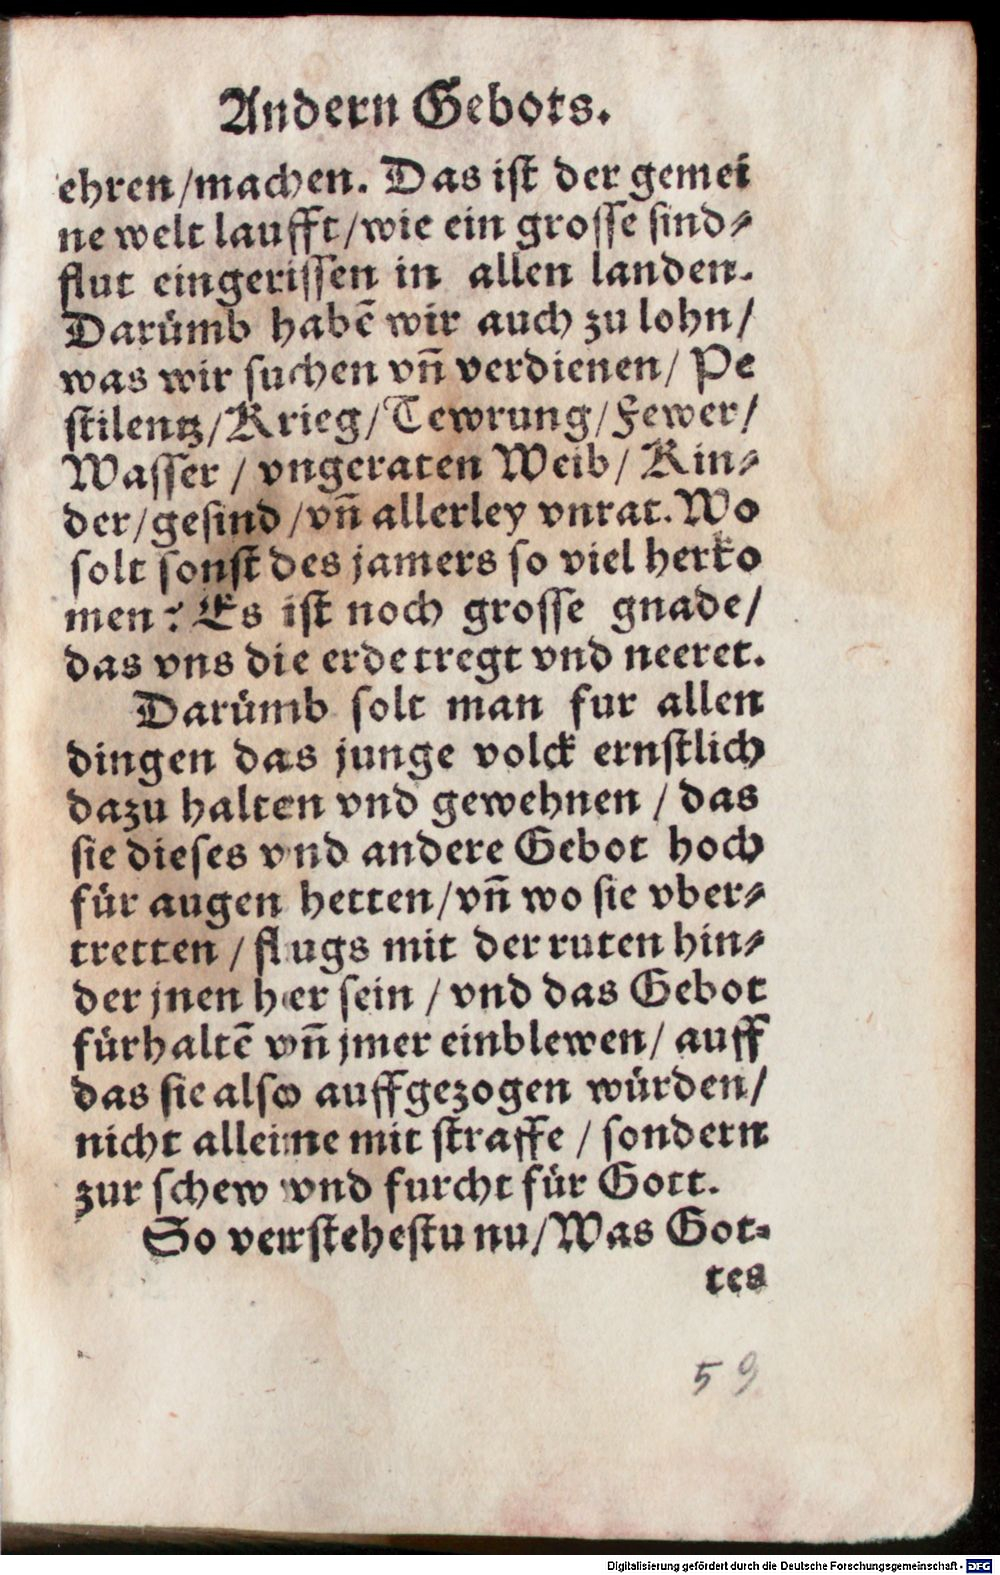 Andern Gebots.
ehren/machen. Das ist der gemei
ne welt laufft/wie ein grosse sind⸗
flut eingerissen in allen landen.
Darümb habē wir auch zu lohn/
was wir suchen vñ verdienen/ Pe
stilentz/Krieg/Tewrung/Fewer/
Wasser / vngeraten Weib/ Kin⸗
der/gesind/vñ allerley vnrat. Wo
solt sonst des jamers so viel herko
men? Es ist noch grosse gnade/
das vns die erde tregt vnd neeret.
Darümb solt man fur allen
dingen das junge volck ernstlich
dazu halten vnd gewehnen / das
sie dieses vnd andere Gebot hoch
für augen hetten/vñ wo sie vber⸗
tretten / flugs mit der ruten hin⸗
der jnen her sein / vnd das Gebot
fürhaltē vñ jmer einblewen/ auff
das sie also auffgezogen würden/
nicht alleine mit straffe / sondern
zur schew vnd furcht für Gott.
So verstehestu nu/Was Got⸗
tes
59
Digitalisierung gefördert durch die Deutsche Forschungsgemeinschaft - DFG